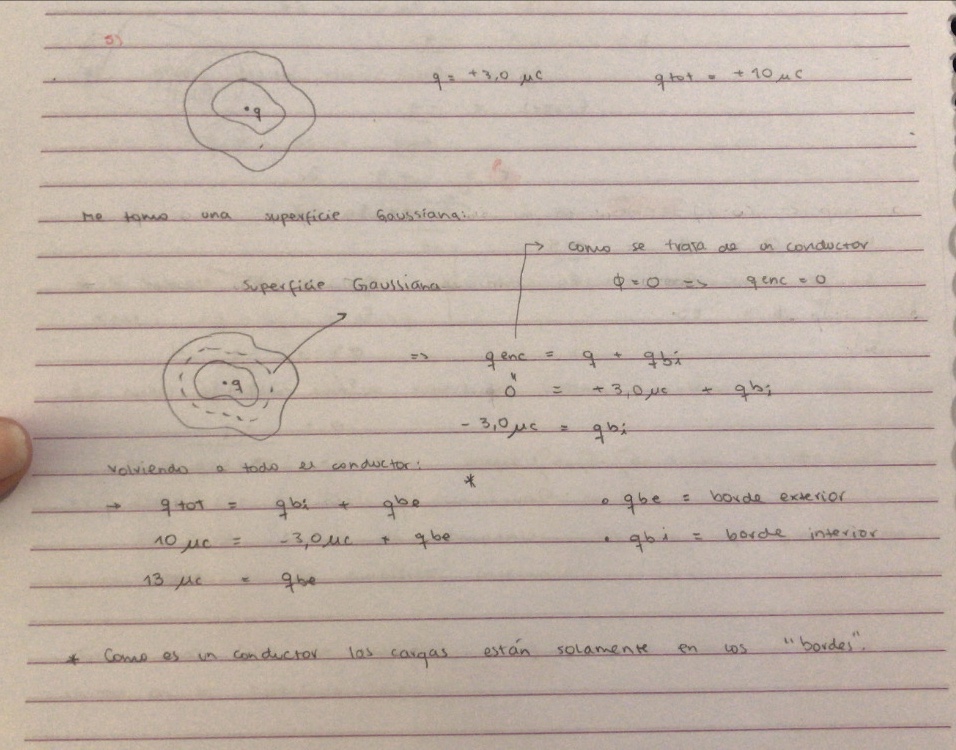 5)
q = +3,0 μc    qtot = +10 μc
•q
Me tomo una superficie Gaussiana:
como se trata de un conductor
Superficie Gaussiana    ϕ=0 => qenc = 0
=> qenc = q + qbi
•q    0 = +3,0 μc + qbi
-3,0 μc = qbi
volviendo a todo el conductor:
→ qtot = qbi + qbe *    • qbe = borde exterior
10 μc = -3,0 μc + qbe    • qbi = borde interior
13 μc = qbe
* Como es un conductor las cargas están solamente en los "bordes".